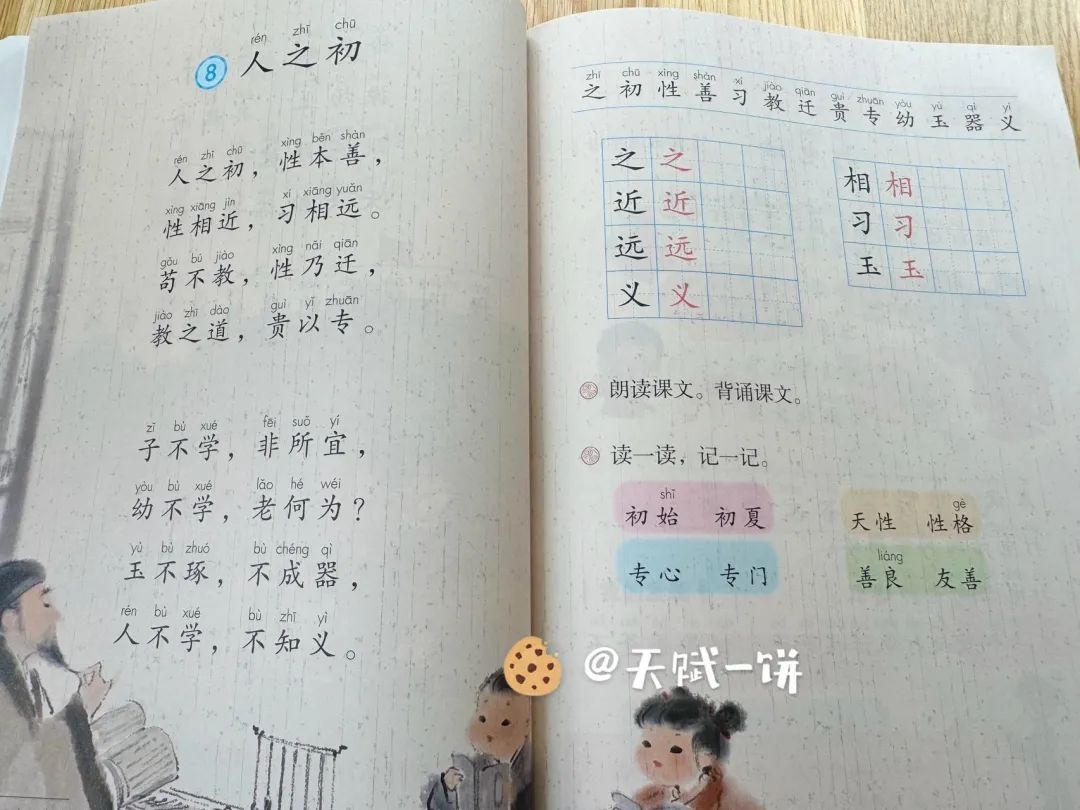 rén zhī chū
8 人之初
rén zhī chū xìng běn shàn
人之初，性本善，
xìng xiāng jìn xí xiāng yuǎn
性相近，习相远。
gǒu bú jiào xìng nǎi qiān
苟不教，性乃迁，
jiào zhī dào guì yǐ zhuān
教之道，贵以专。
zǐ bù xué fēi suǒ yí
子不学，非所宜，
yòu bù xué lǎo hé wéi
幼不学，老何为？
yù bù zhuó bù chéng qì
玉不琢，不成器，
rén bù xué bù zhī yì
人不学，不知义。
zhī chū xìng shàn xí jiào qiān guì zhuān yòu yù qì yì
之初性善习教迁贵专幼玉器义
之之
近近
远远
义义
相相
习习
玉玉
朗读课文。背诵课文。
读一读，记一记。
shǐ
初始 初夏
gé
天性 性格
专心 专门
liáng
善良 友善
@天赋一饼